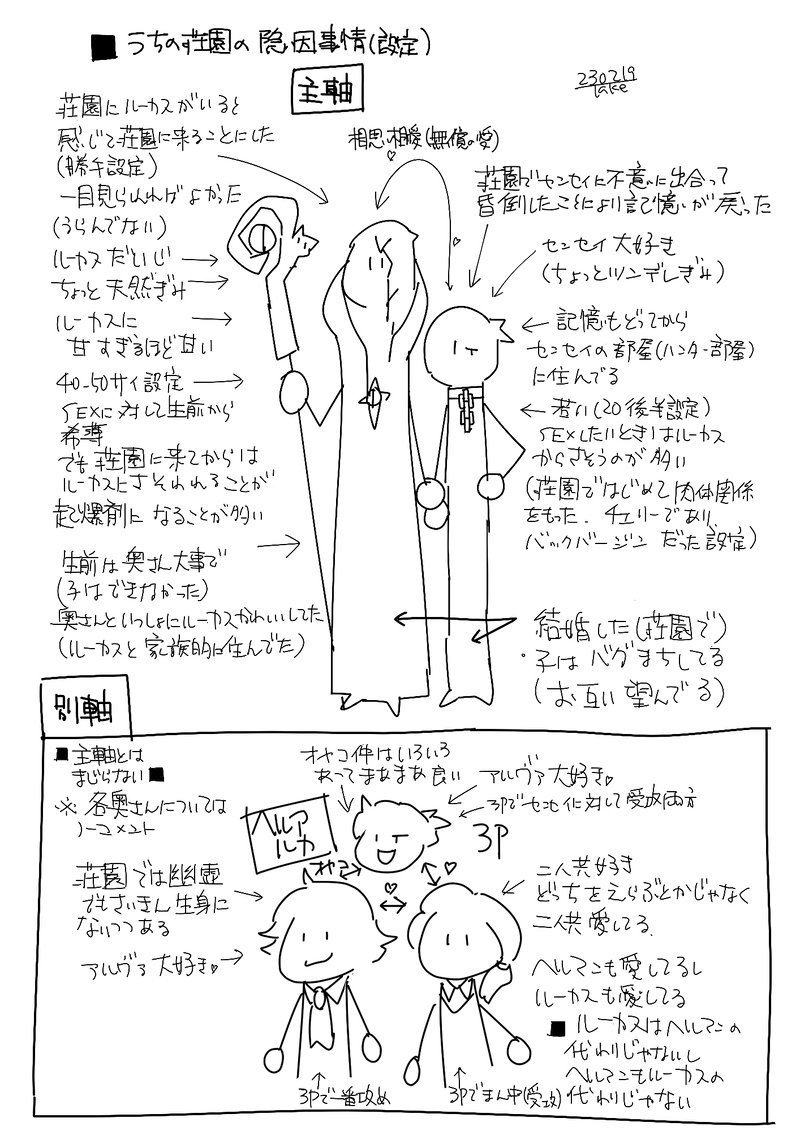 ■うちの荘園の隠・囚事情(設定)
230219
take
主軸
荘園にルーカスがいると
感じて荘園に来ることにした
(勝手設定)
一目見られればよかった
(うらんでない)
ルーカスだいじ→
ちょっと天然ぎみ→
ルーカスに→
甘すぎるほど甘い
40-50サイ設定→
SEXに対して生前から
希薄
でも荘園に来てからは
ルーカスにさそわれることが
起爆剤になることが多い
生前は奥さん大事で
(子はできなかった)
奥さんといっしょにルーカスかわいいしてた
(ルーカスと家族的に住んでた)
相思相愛(無償の愛)
荘園でセンセイに不意に出合って
昏倒したことにより記憶が戻った
センセイ大好き
(ちょっとツンデレぎみ)
←記憶もどってから
センセイの部屋(ハンター部屋)
に住んでる
←若い(20後半設定)
SEXしたいときはルーカス
からさそうのが多い
(荘園ではじめて肉体関係
をもった.チェリーであり
バックバージンだった設定)
結婚した(荘園で)
・子はバグまちしてる
(お互い望んでる)
別軸
■主軸とは
まじらない■
※各奥さんについては
ノーコメント
ヘルア
ルカ
オヤコ件はいろいろ
あってまあまあ良い
アルヴァ大好き♥
3Pでセンセイに対して受攻両方
3P
オヤコ
荘園では幽霊
でもさいきん生身に
ないつつある
アルヴァ大好き♥→
二人共好き
どっちをえらぶとかじゃなく
二人共愛してる.
ヘルマンも愛してるし
ルーカスも愛してる
■ルーカスはヘルマンの
代わりじゃないし
ヘルマンもルーカスの
代わりじゃない
3Pで一番攻め
3Pでまん中(受攻)